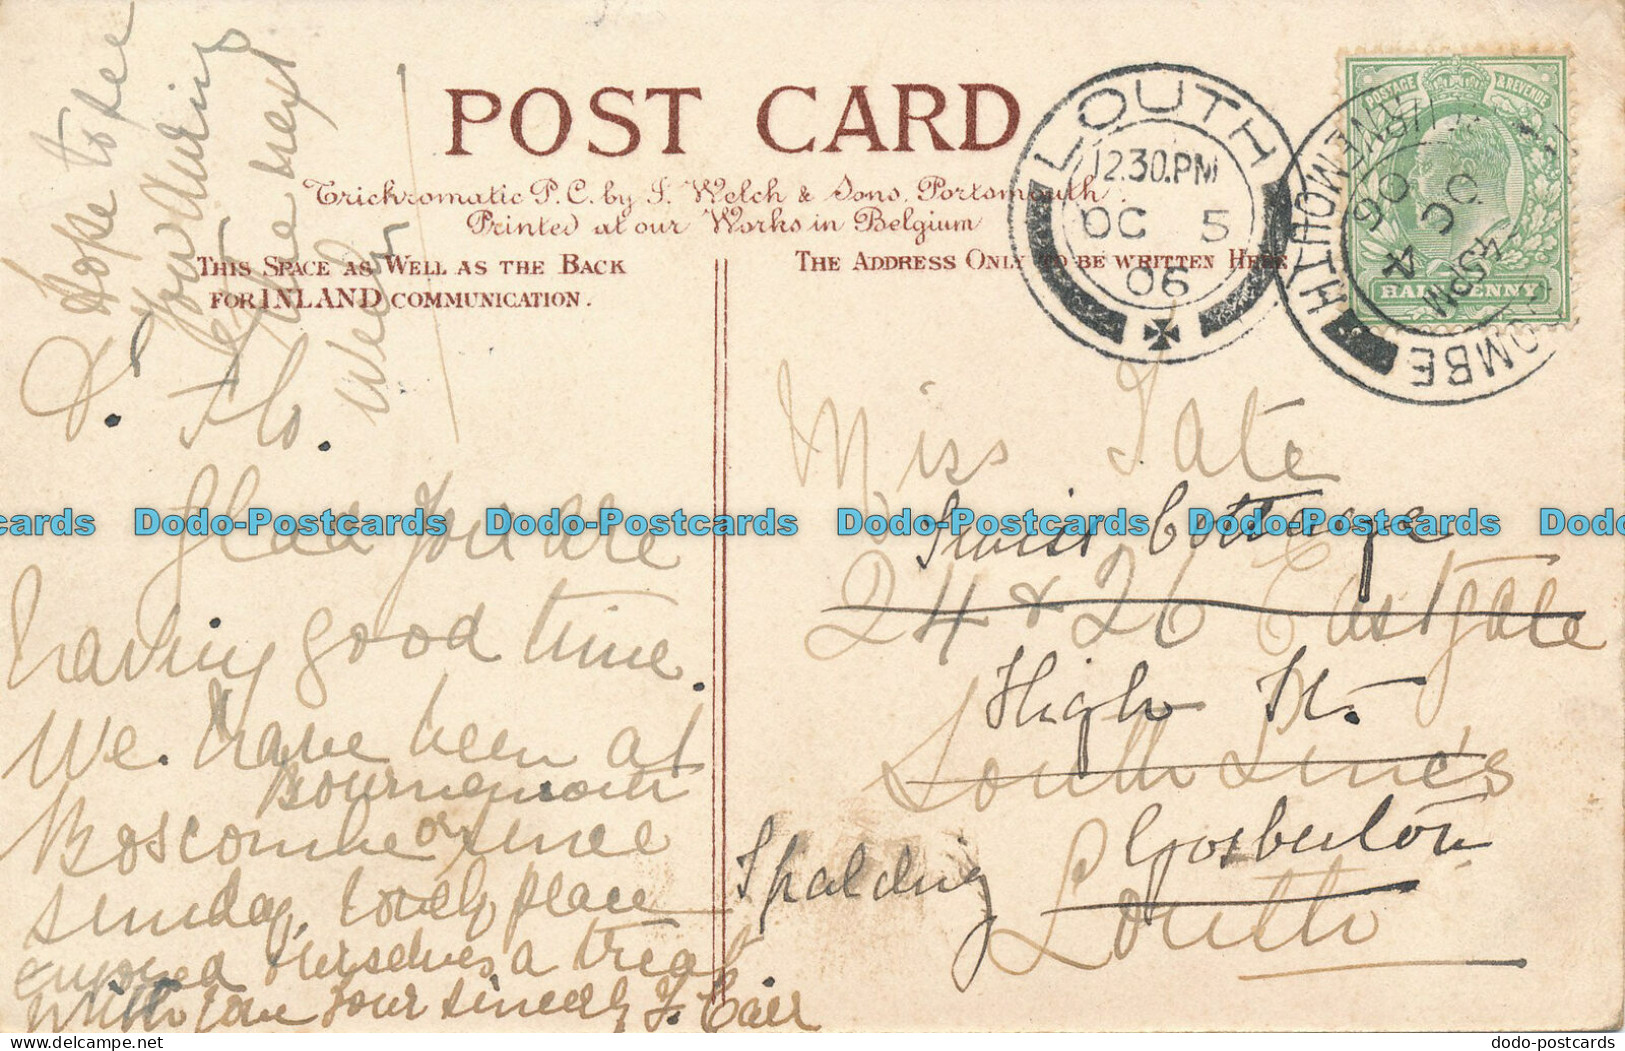 POST CARD
Trichromatic P.C. by J. Welch & Sons, Portsmouth.
Printed at our Works in Belgium
THIS SPACE AS WELL AS THE BACK
FOR INLAND COMMUNICATION.
THE ADDRESS ONLY TO BE WRITTEN HERE
LOUTH
12.30.PM
OC 5
06
POSTAGE & REVENUE
HALFPENNY
BOURNEMOUTH
OMBE
45PM
OC 4
06
Hope to see
you during
the next
week
Glad you are
having good time.
We have been at
Bournemouth
Boscombe or since
Sunday, lovely place
enjoyed ourselves a treat
with love your sincerely F. Carr
Miss Tate
Swiss Cottage
24 & 26 Eastgate
High St.
Louth Lincs
Gosberton
Spalding
Louth
Dodo-Postcards Dodo-Postcards Dodo-Postcards Dodo-Postcards
dodo-postcards.com